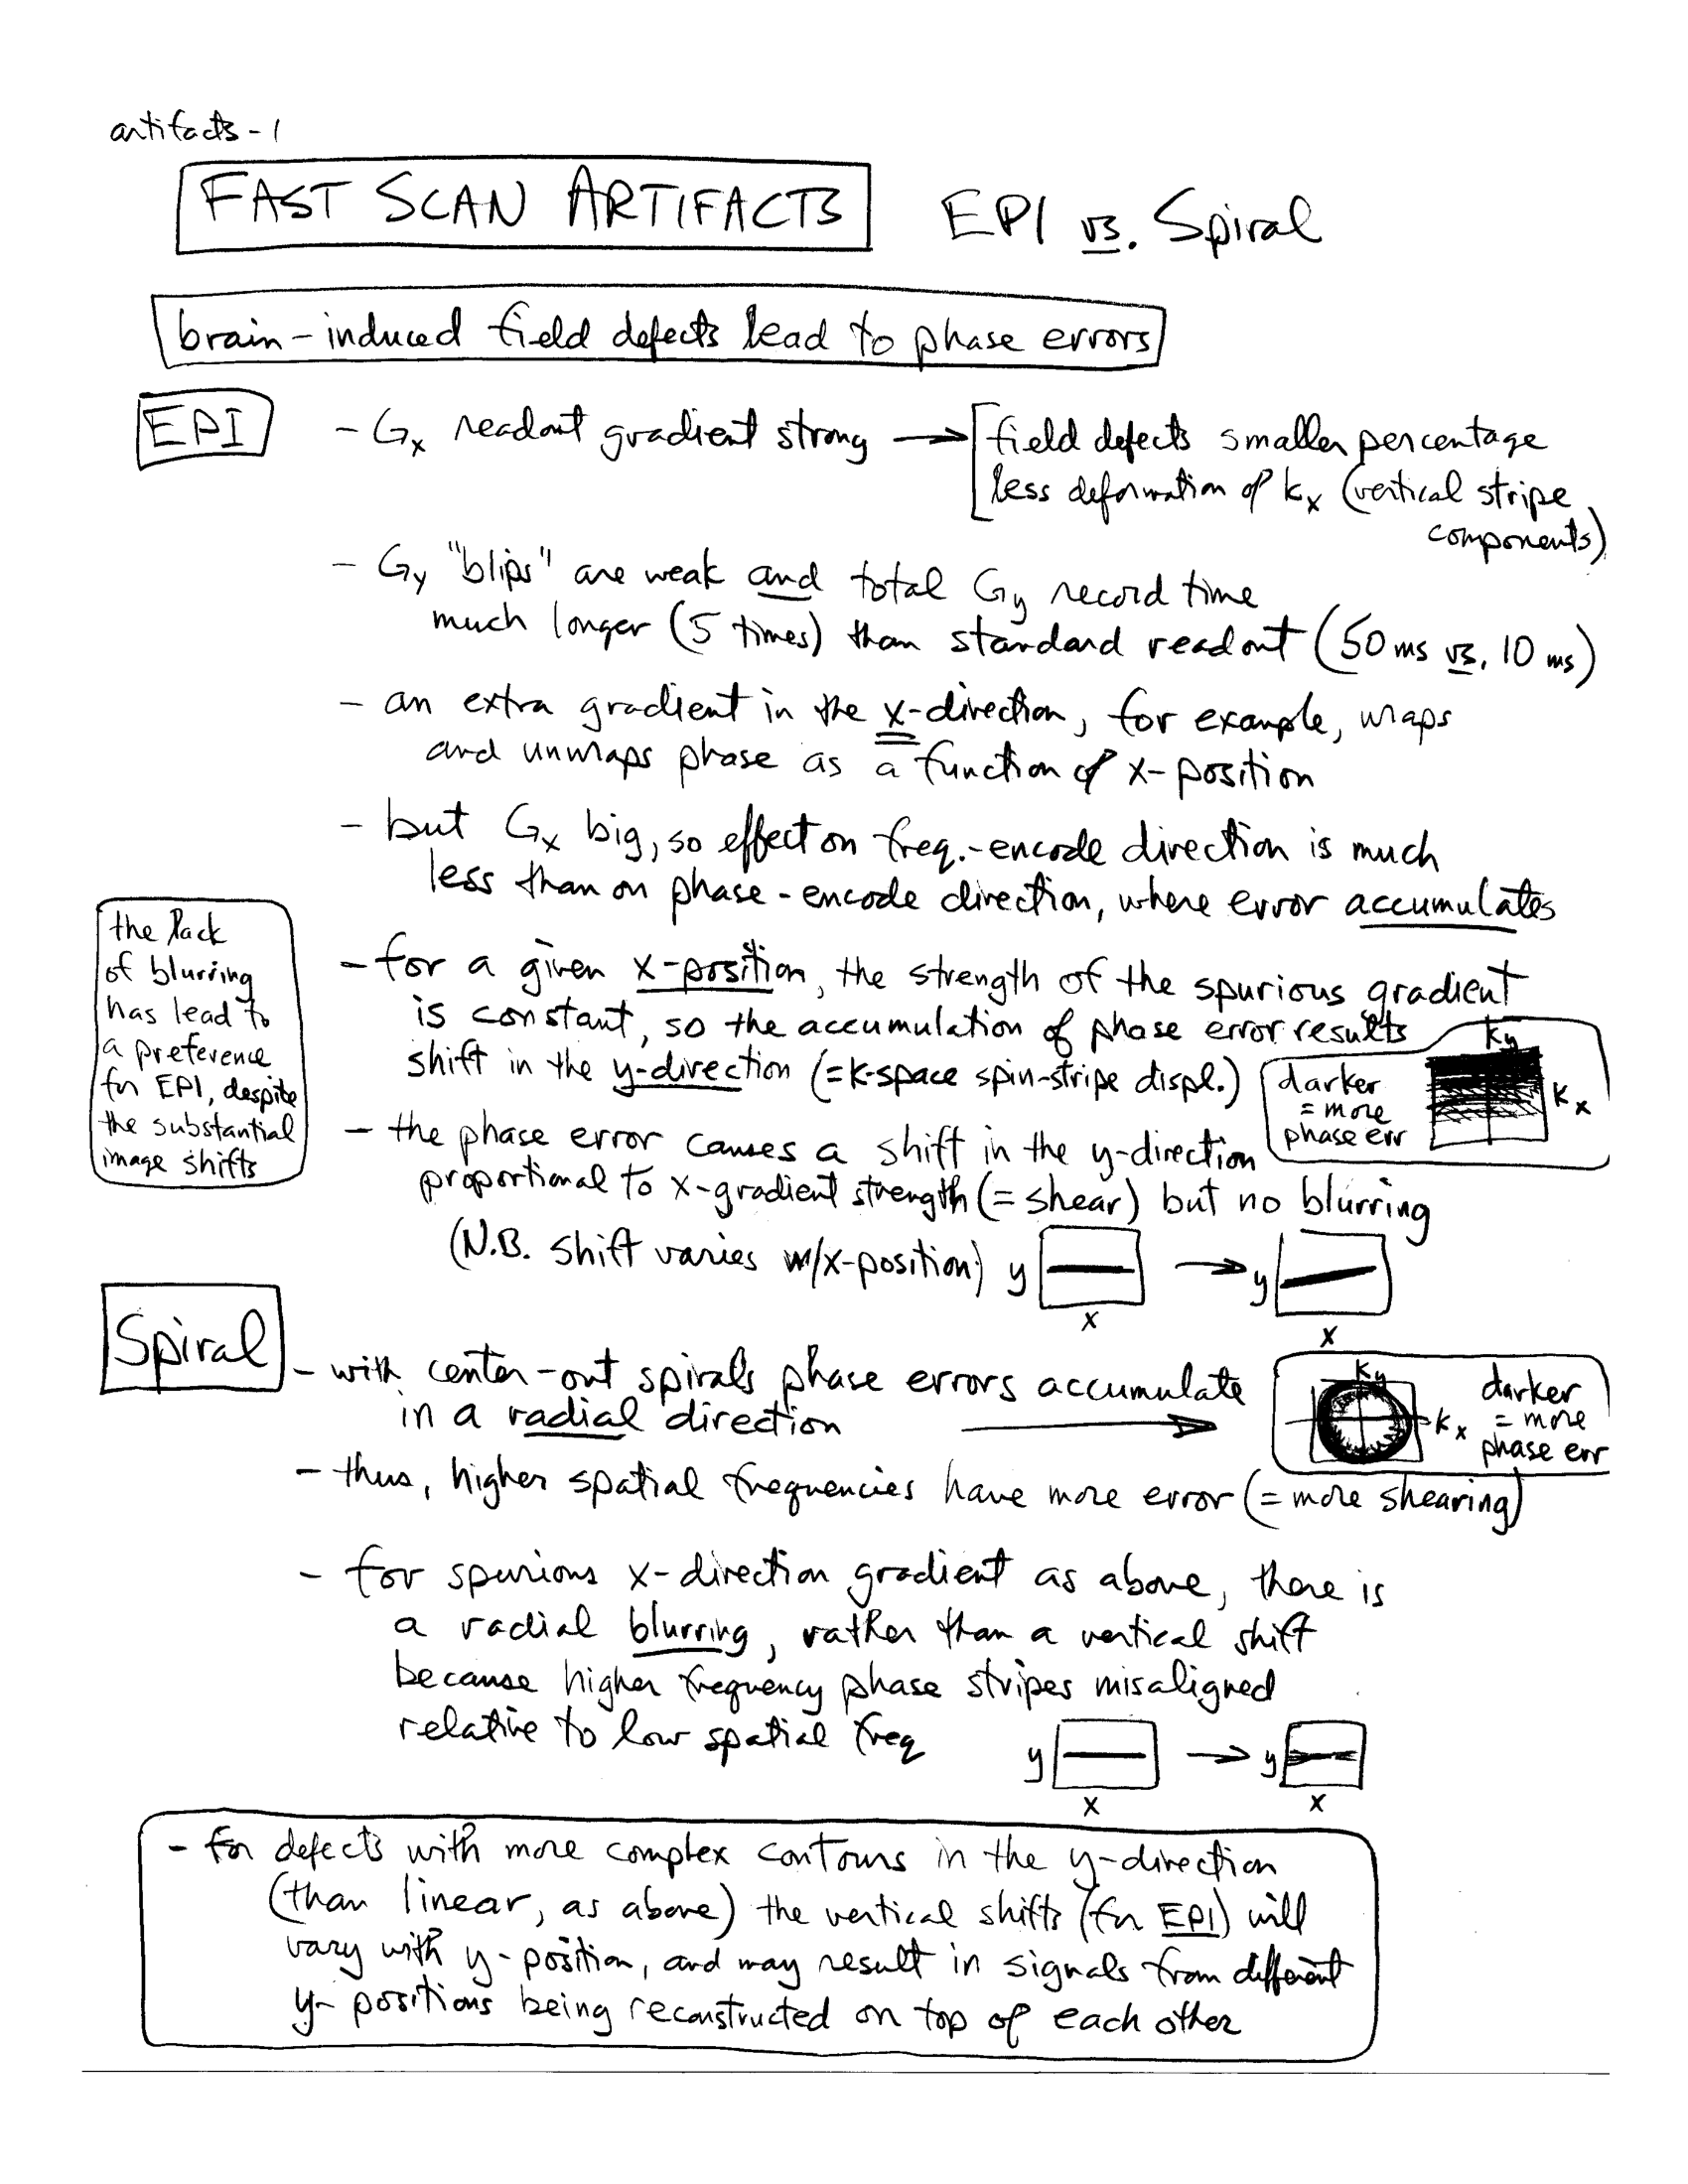 artifacts-1
FAST SCAN ARTIFACTS EPI vs. Spiral
brain-induced field defects lead to phase errors
EPI
- Gx readout gradient strong → field defects smaller percentage
less deformation of kx (vertical stripe
components)
- Gy "blips" are weak and total Gy record time
much longer (5 times) than standard readout (50 ms vs. 10 ms)
- an extra gradient in the x-direction, for example, wraps
and unwraps phase as a function of x-position
- but Gx big, so effect on freq.-encode direction is much
less than on phase-encode direction, where error accumulates
the lack
of blurring
has lead to
a preference
for EPI, despite
the substantial
image shifts
- for a given x-position, the strength of the spurious gradient
is constant, so the accumulation of phase error results
shift in the y-direction (=k-space spin-stripe displ.)
darker
= more
phase err
ky
kx
- the phase error causes a shift in the y-direction
proportional to x-gradient strength (= shear) but no blurring
(N.B. shift varies w/x-position)
y
x
→
y
x
Spiral
- with center-out spirals phase errors accumulate
in a radial direction →
ky
kx
darker
= more
phase err
- thus, higher spatial frequencies have more error (= more shearing)
- for spurious x-direction gradient as above, there is
a radial blurring, rather than a vertical shift
because higher frequency phase stripes misaligned
relative to low spatial freq
y
x
→
y
x
- for defects with more complex contours in the y-direction
(than linear, as above) the vertical shifts (for EPI) will
vary with y-position, and may result in signals from different
y-positions being reconstructed on top of each other